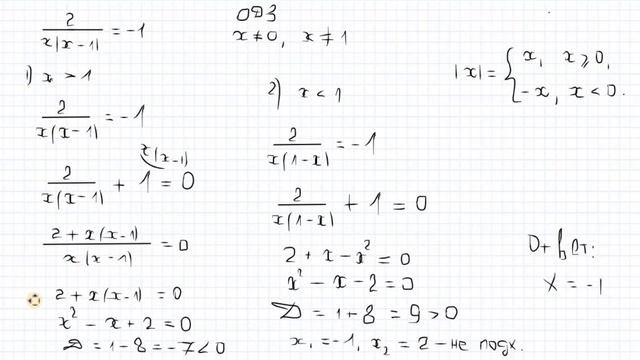 2/(x|x-1|) = -1
ОДЗ
x ≠ 0, x ≠ 1
|x| = { x, x ⩾ 0,
-x, x < 0.
1) x > 1
2/(x(x-1)) = -1
x(x-1)
2/(x(x-1)) + 1 = 0
(2 + x(x-1))/(x(x-1)) = 0
2 + x(x-1) = 0
x² - x + 2 = 0
D = 1 - 8 = -7 < 0
2) x < 1
2/(x(1-x)) = -1
2/(x(1-x)) + 1 = 0
2 + x - x² = 0
x² - x - 2 = 0
D = 1 + 8 = 9 > 0
x₁ = -1, x₂ = 2 - не подх.
Ответ:
x = -1